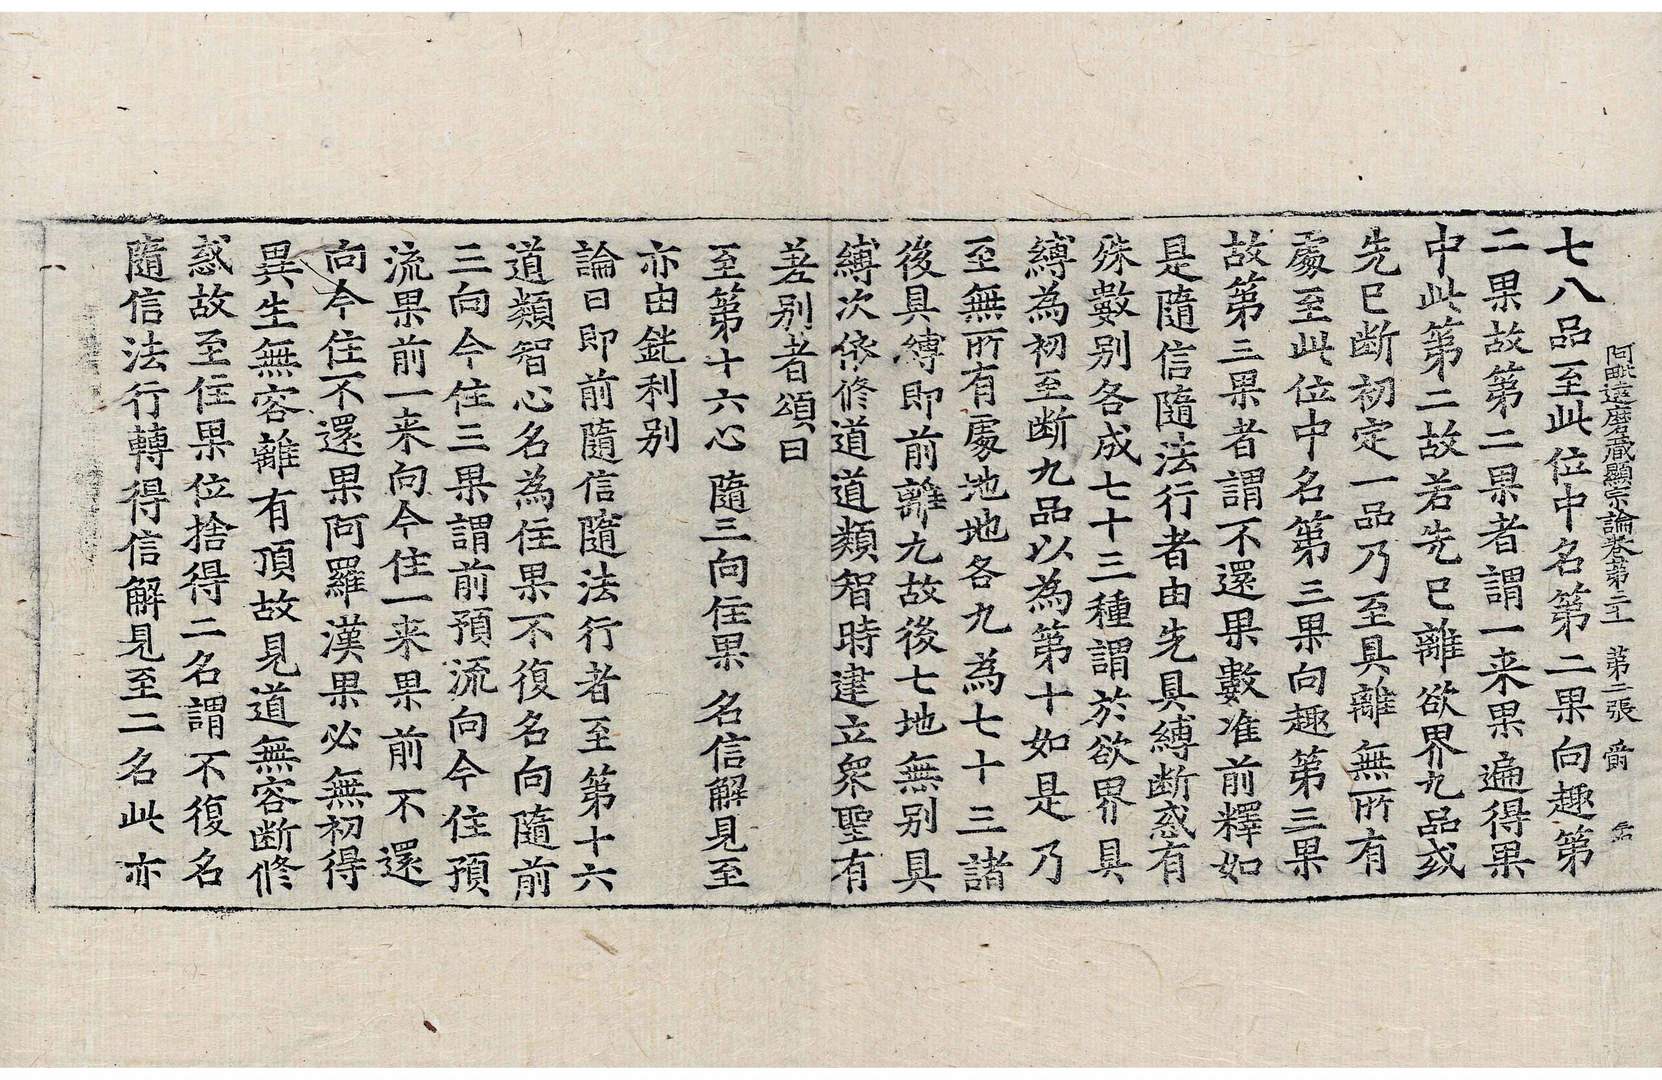 阿毗達磨藏顯宗論卷第三十　第二張　爵
七八品至此位中名第二果向趣第
二果故第二果者謂一来果遍得果
中此第二故若先已離欲界九品或
先已断初定一品乃至具離無所有
處至此位中名第三果向趣第三果
故第三果者謂不還果數准前釋如
是隨信隨法行者由先具縛断惑有
殊數别各成七十三種謂於欲界具
縛為初至断九品以為第十如是乃
至無所有處地地各九為七十三諸
後具縛即前離九故後七地無别具
縛次依修道道類智時建立衆聖有
差别者頌曰
至第十六心　隨三向住果　名信解見至
亦由鈍利别
論曰即前隨信隨法行者至第十六
道類智心名為住果不復名向隨前
三向今住三果謂前預流向今住預
流果前一来向今住一来果前不還
向今住不還果阿羅漢果必無初得
異生無容離有頂故見道無容断修
惑故至住果位捨得二名謂不復名
隨信法行轉得信解見至二名此亦